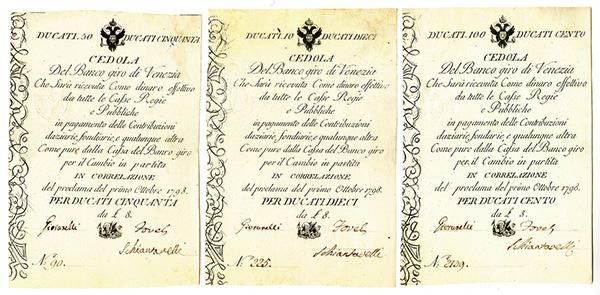 DUCATI. 50 DUCATI CINQUANTA
CEDOLA
Del Banco giro di Venezia
Che Sarà ricevuta Come dinaro effettivo
da tutte le Casse Regie
e Pubbliche
in pagamento delle Contribuzioni
daziarie, fondiarie, e qualunque altra
Come pure dalla Cassa del Banco giro
per il Cambio in partita
IN CORRELAZIONE
del proclama del primo Ottobre 1798.
PER DUCATI CINQUANTA
da £ 8.
Schiantarelli
N.º 90.
DUCATI. 10 DUCATI DIECI
CEDOLA
Del Banco giro di Venezia
Che Sarà ricevuta Come dinaro effettivo
da tutte le Casse Regie
e Pubbliche
in pagamento delle Contribuzioni
daziarie, fondiarie, e qualunque altra
Come pure dalla Cassa del Banco giro
per il Cambio in partita
IN CORRELAZIONE
del proclama del primo Ottobre 1798.
PER DUCATI DIECI
da £ 8.
Schiantarelli
N.º 225.
DUCATI. 100 DUCATI CENTO
CEDOLA
Del Banco giro di Venezia
Che Sarà ricevuta Come dinaro effettivo
da tutte le Casse Regie
e Pubbliche
in pagamento delle Contribuzioni
daziarie, fondiarie, e qualunque altra
Come pure dalla Cassa del Banco giro
per il Cambio in partita
IN CORRELAZIONE
del proclama del primo Ottobre 1798.
PER DUCATI CENTO
da £ 8.
Schiantarelli
N.º 2129.